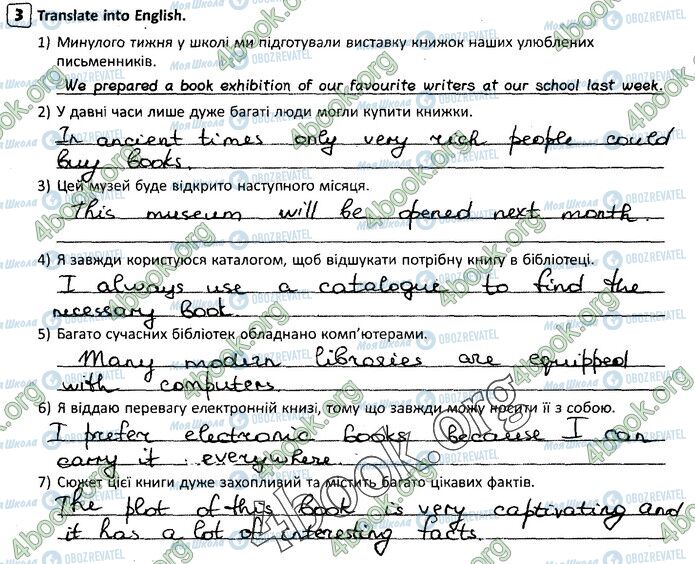 3 Translate into English.
1) Минулого тижня у школі ми підготували виставку книжок наших улюблених
письменників.
We prepared a book exhibition of our favourite writers at our school last week.
2) У давні часи лише дуже багаті люди могли купити книжки.
In ancient times only very rich people could
buy books.
3) Цей музей буде відкрито наступного місяця.
This museum will be opened next month.
4) Я завжди користуюся каталогом, щоб відшукати потрібну книгу в бібліотеці.
I always use a catalogue to find the
necessary book.
5) Багато сучасних бібліотек обладнано комп'ютерами.
Many modern libraries are equipped
with computers.
6) Я віддаю перевагу електронній книзі, тому що завжди можу носити її з собою.
I prefer electronic books because I can
carry it everywhere
7) Сюжет цієї книги дуже захопливий та містить багато цікавих фактів.
The plot of this book is very captivating and
it has a lot of interesting facts.
4book.org
Моя Школа OBOZREVATEL